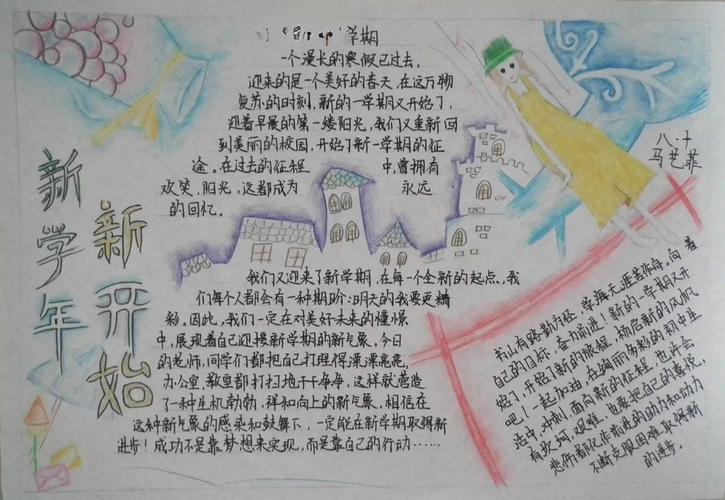 学期
一个漫长的寒假已过去,
迎来的是一个美好的春天,在这万物
复苏的时刻,新的一学期又开始了,
迎着早晨的第一缕阳光,我们又重新回
到美丽的校园,开始了新一学期的征
途。在过去的征程中,曾拥有
欢笑、阳光,这都成为永远
的回忆。
八.十
马艺菲
新学年
新开始
我们又迎来了新学期,在每一个全新的起点,我
们每个人都会有一种期盼:明天的我要更精
彩,因此,我们一定在对美好未来的憧憬
中,展现着自己迎接新学期的新气象。今日
的老师,同学们都把自己打理得漂漂亮亮,
办公室,教室都打扫地干干净净,这样就营造
了一种生机勃勃,祥和向上的新气象,相信在
这种新气象的感染和鼓舞下,一定能在新学期取得新
进步!成功不是靠梦想来实现,而是靠自己的行动……
书山有路勤为径,学海无涯苦作舟,向着
自己的目标,奋力前进,新的一学期又开
始了,开始了新的旅程,扬启新的风帆
吧!一起加油,在绚丽多彩的初中生
活中,冲刺,面向新的征程,也许会
有坎坷、艰难,也要把自己的喜悦,
悲伤都化作前进的助力和动力
不断克服困难取得新
的进步。